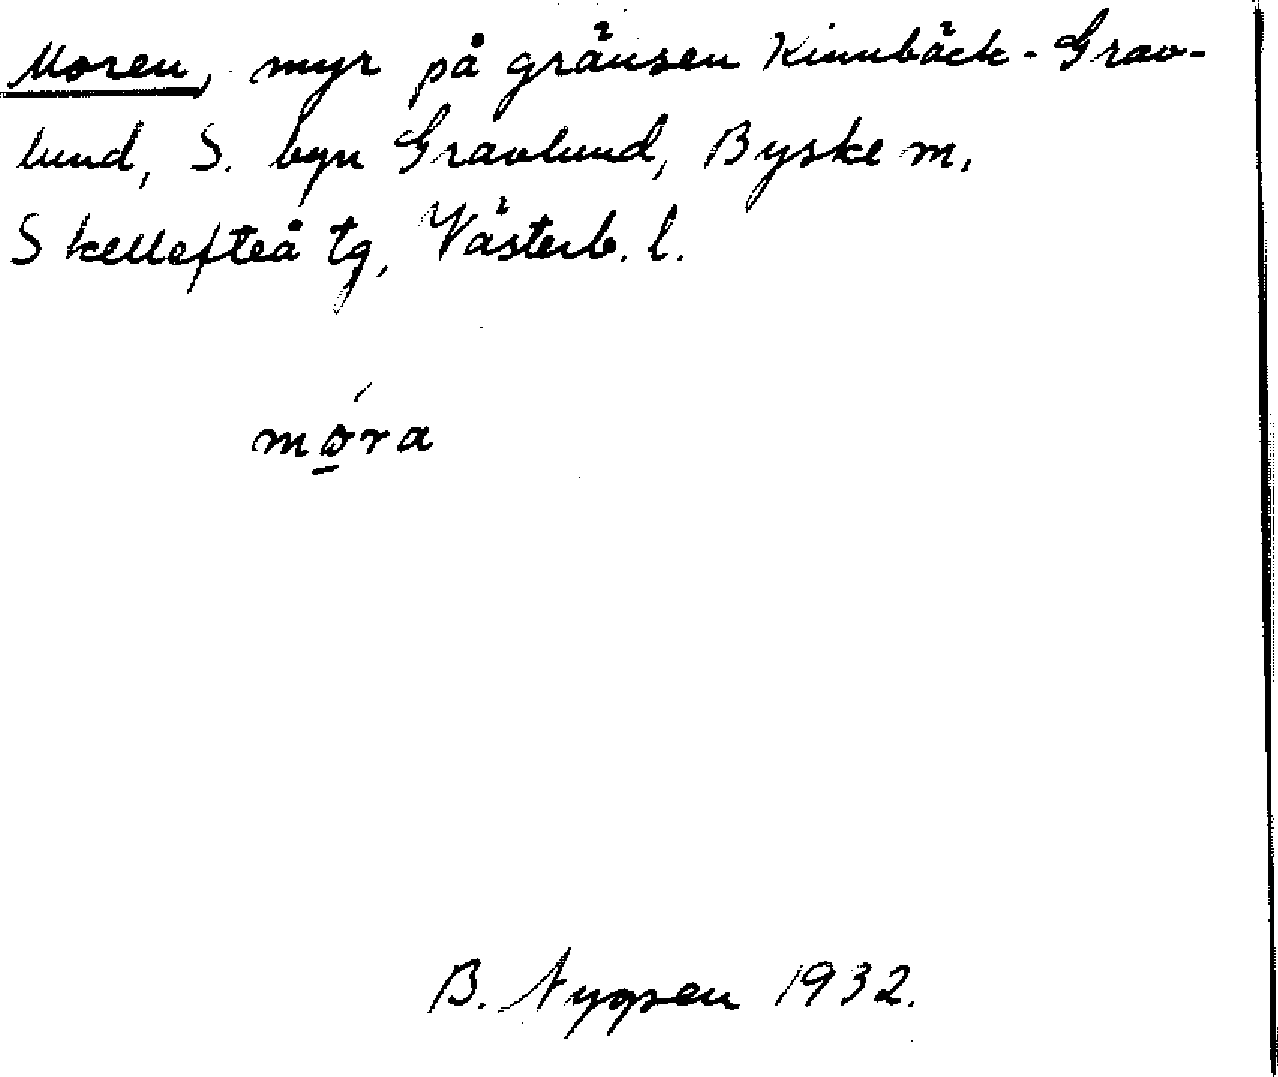 Moren, myr på gränsen Kinnbäck-Grav-
lund, S. byn Gravlund, Byske m.
Skellefteå tg, Västerb. l.
mo̱ra
B. Nygren 1932.